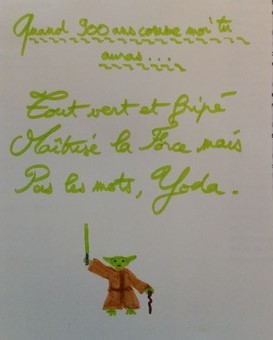 Quand 900 ans comme moi tu
auras...
Tout vert et fripé
Maîtrisé la Force mais
Pas les mots, Yoda.